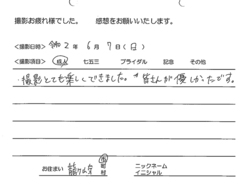 撮影お疲れ様でした。 感想をお願いいたします。
<撮影日時> 令和 2 年 6 月 7 日 ( 日 )
<撮影項目> 成人 七五三 ブライダル 記念 その他
・撮影とても楽しくできました。 皆さんが優しかったです。
お住まい 龍ケ崎 市 町 村
ニックネーム
イニシャル